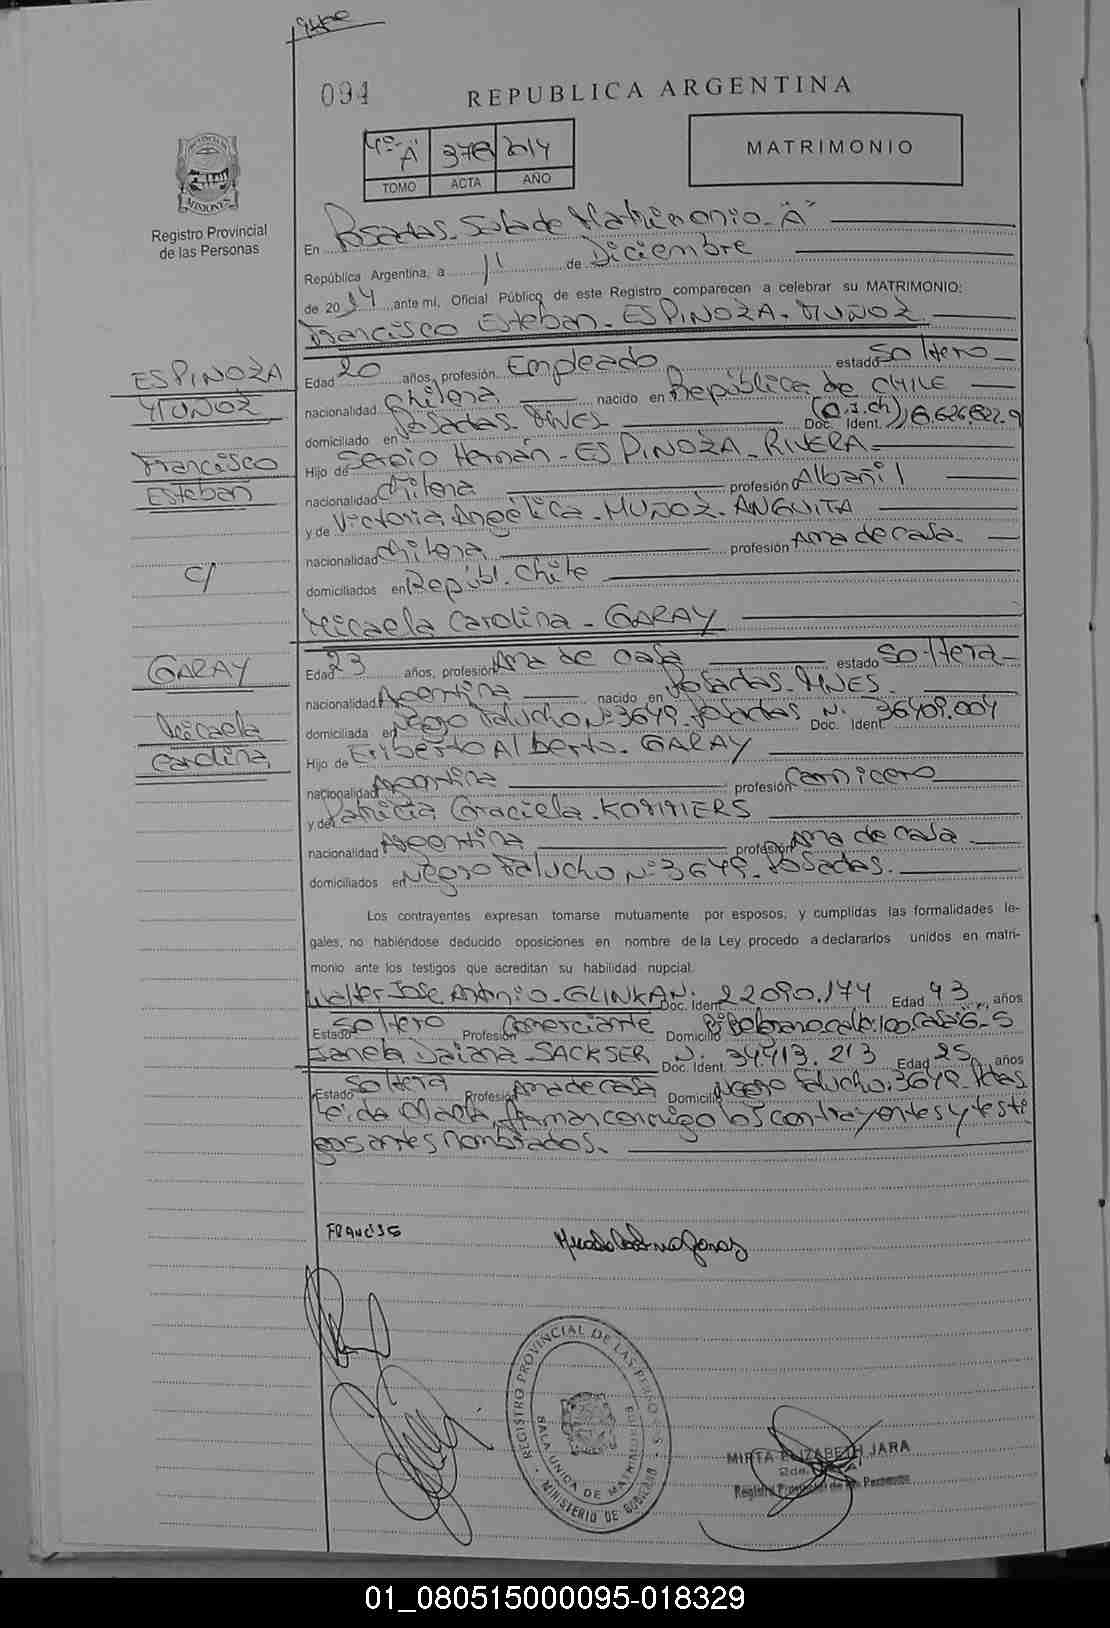 094
REPUBLICA ARGENTINA
4º "A" 378 2014
TOMO ACTA AÑO
MATRIMONIO
PROVINCIA DE MISIONES
Registro Provincial
de las Personas
En Posadas. Sala de Matrimonio - "A"
República Argentina, a 11 de Diciembre
de 2014 ante mi, Oficial Público de este Registro comparecen a celebrar su MATRIMONIO:
Francisco Esteban - ESPINOZA - MUÑOZ
ESPINOZA
MUÑOZ
Francisco
Esteban
C/
GARAY
Micaela
Carolina
Edad 20 años, profesión Empleado estado Soltero
nacionalidad Chilena nacido en República de CHILE
domiciliado en Posadas. MNES Doc. Ident.
Hijo de Sergio Hernán - ESPINOZA - RIVERA
nacionalidad Chilena profesión Albañil
y de Victoria Angélica - MUÑOZ - ANGUITA
nacionalidad Chilena profesión Ama de casa.
domiciliados en Repúbl. Chile
Micaela Carolina - GARAY
Edad 23 años, profesión Ama de casa estado Soltera
nacionalidad Argentina nacido en Posadas - MNES
domiciliada en Negro Falucho Nº 3649 - Posadas Doc. Ident. N: 36409.004
Hijo de Eriberto Alberto - GARAY
nacionalidad Argentina profesión Carnicero
y de Patricia Graciela - KOMMERS
nacionalidad Argentina profesión Ama de casa
domiciliados en Negro Falucho Nº 3649 - Posadas.
Los contrayentes expresan tomarse mutuamente por esposos, y cumplidas las formalidades le-
gales, no habiéndose deducido oposiciones en nombre de la Ley procedo a declararlos unidos en matri-
monio ante los testigos que acreditan su habilidad nupcial.
Walter José Antonio - GLINKA N: Doc. Ident. 22090.174 Edad 43 años
Estado Soltero Profesión Comerciante Domicilio
Daiana - SACKSER N: Doc. Ident. 34.413.213 Edad 25 años
Estado Soltera Profesión Ama de casa Domicilio Negro Falucho. 3649 - Pdas
Leida el Acta, firman conmigo los contrayentes y testi
gos antes nombrados.
REGISTRO PROVINCIAL DE LAS PERSONAS
SALA UNICA DE MATRIMONIO
MINISTERIO DE GOBIERNO
MIRTA ELIZABETH JARA
Registro Provincial de las Personas
01_080515000095-018329